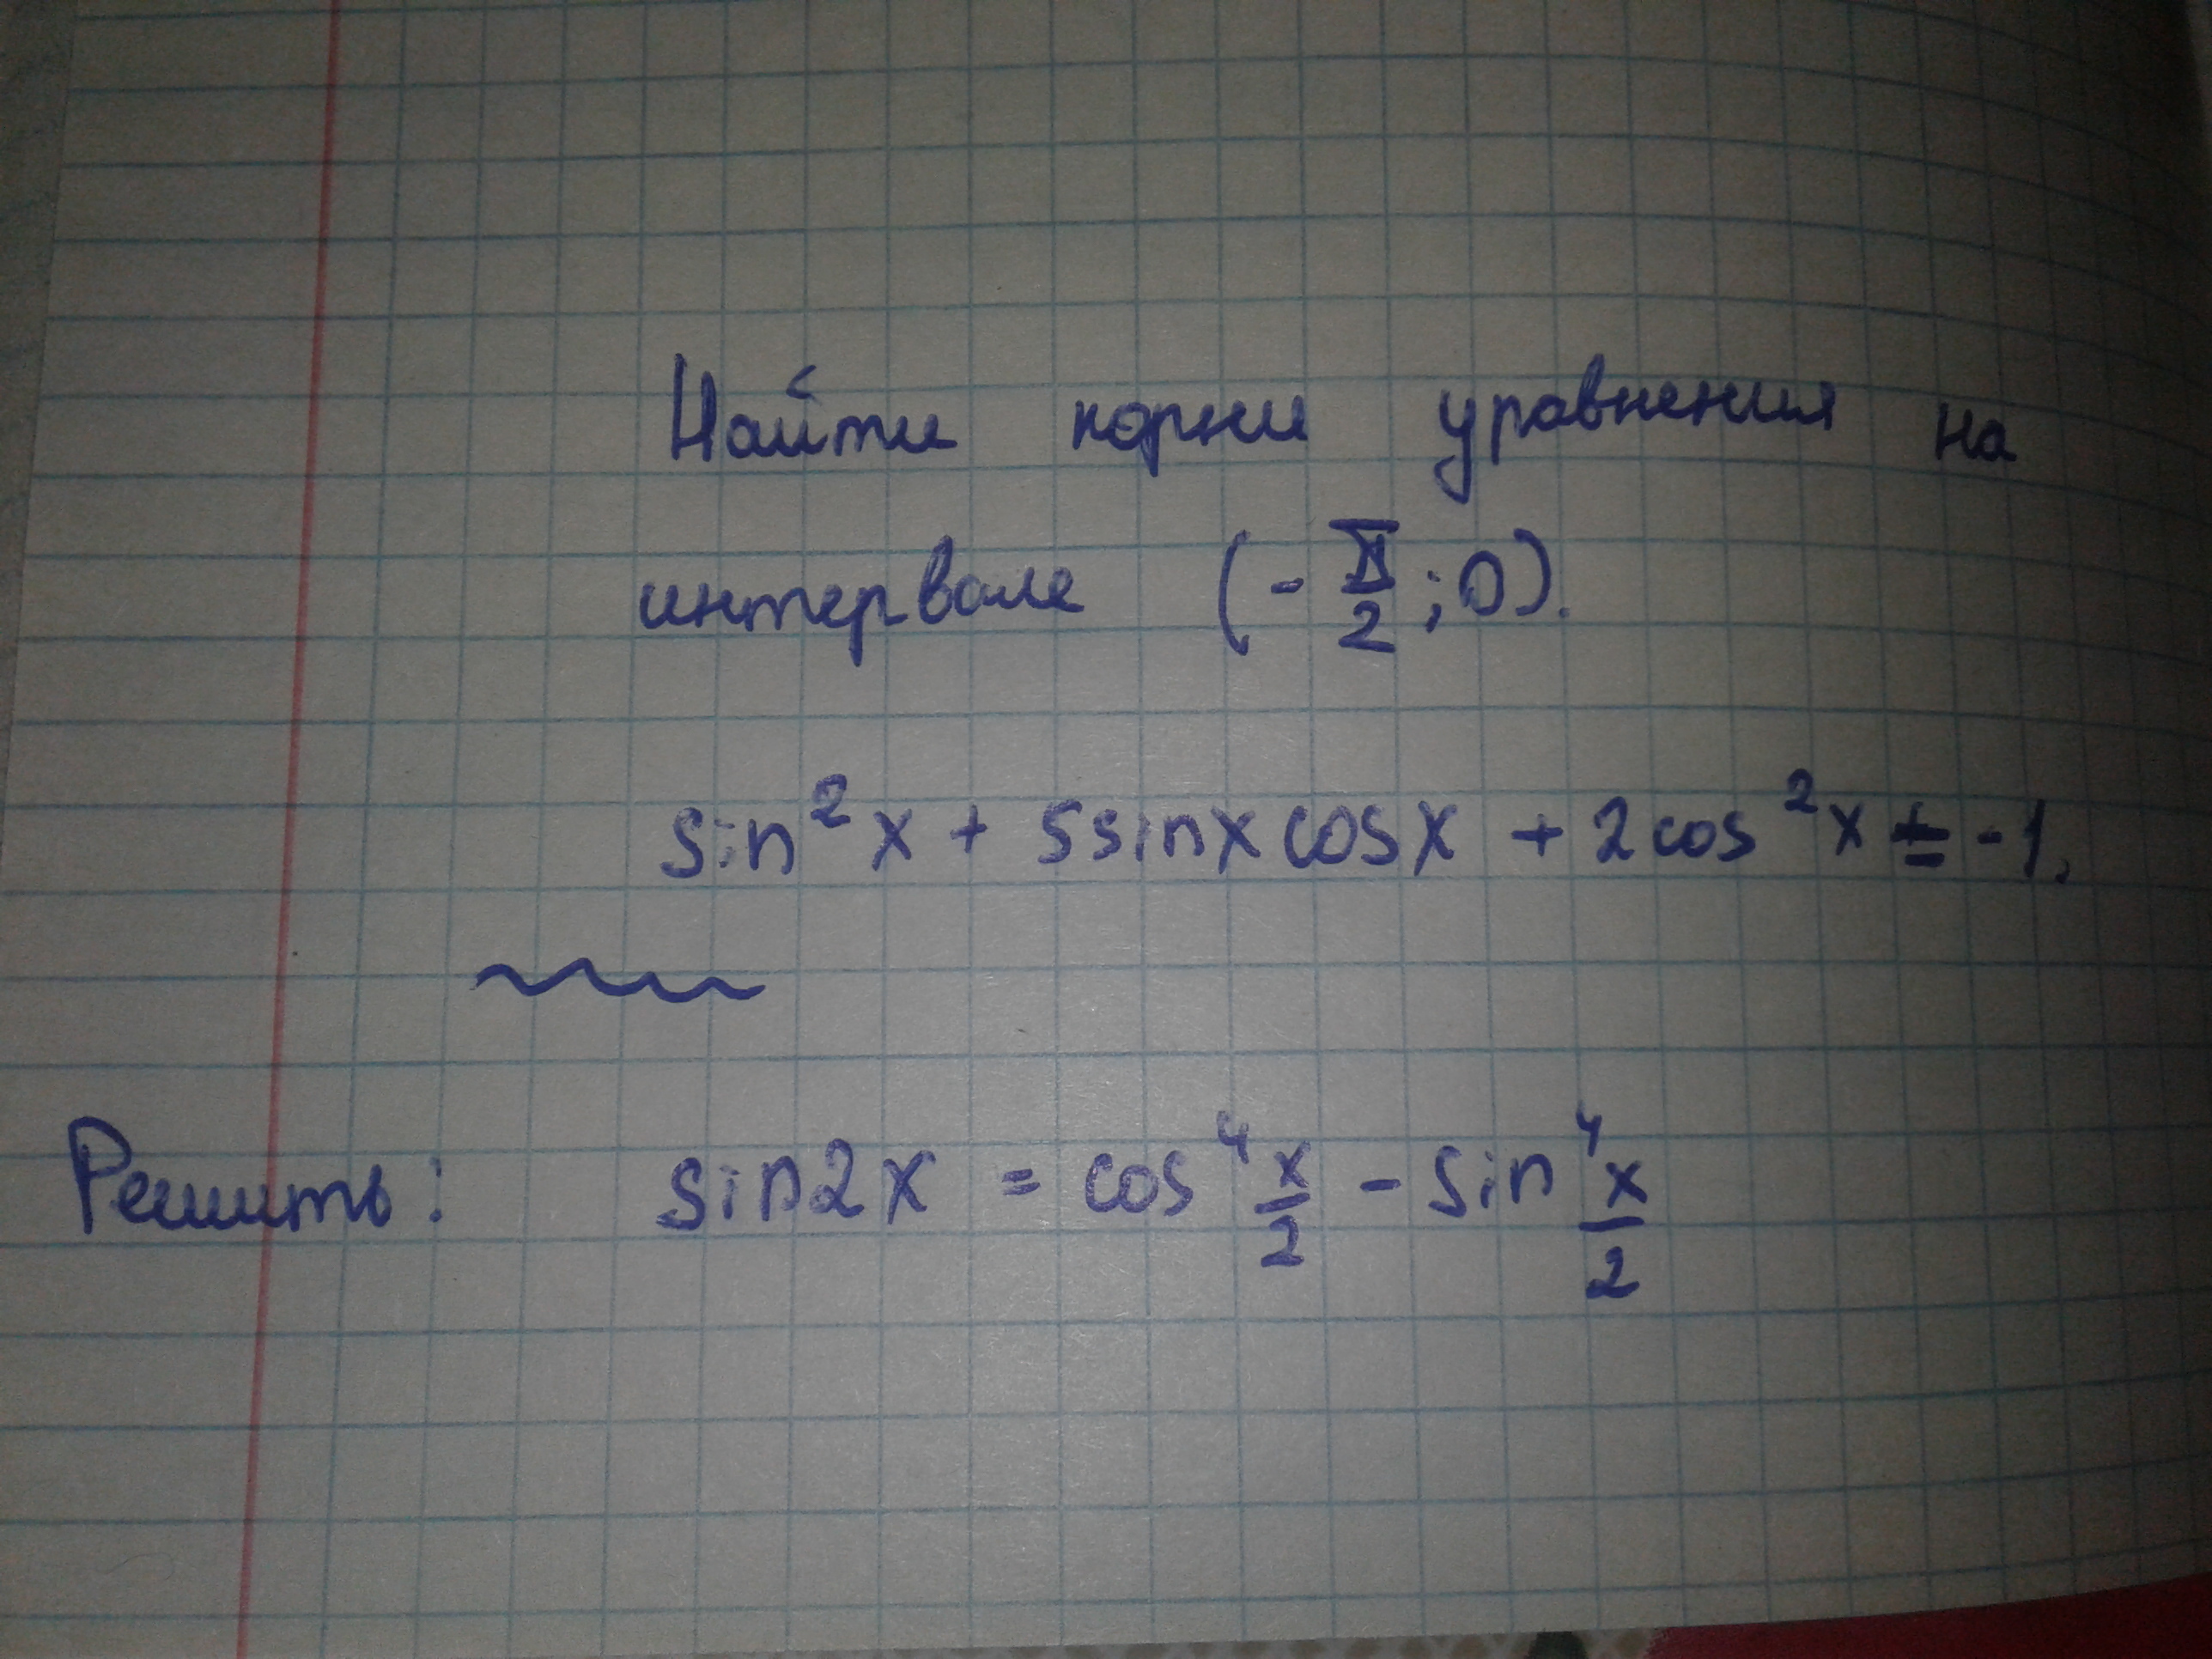 Найти корни уравнения на
интервале (- π/2 ; 0).
sin² x + 5sinx cosx + 2cos² x = -1.
Решить: sin2x = cos⁴ x/2 - sin⁴ x/2